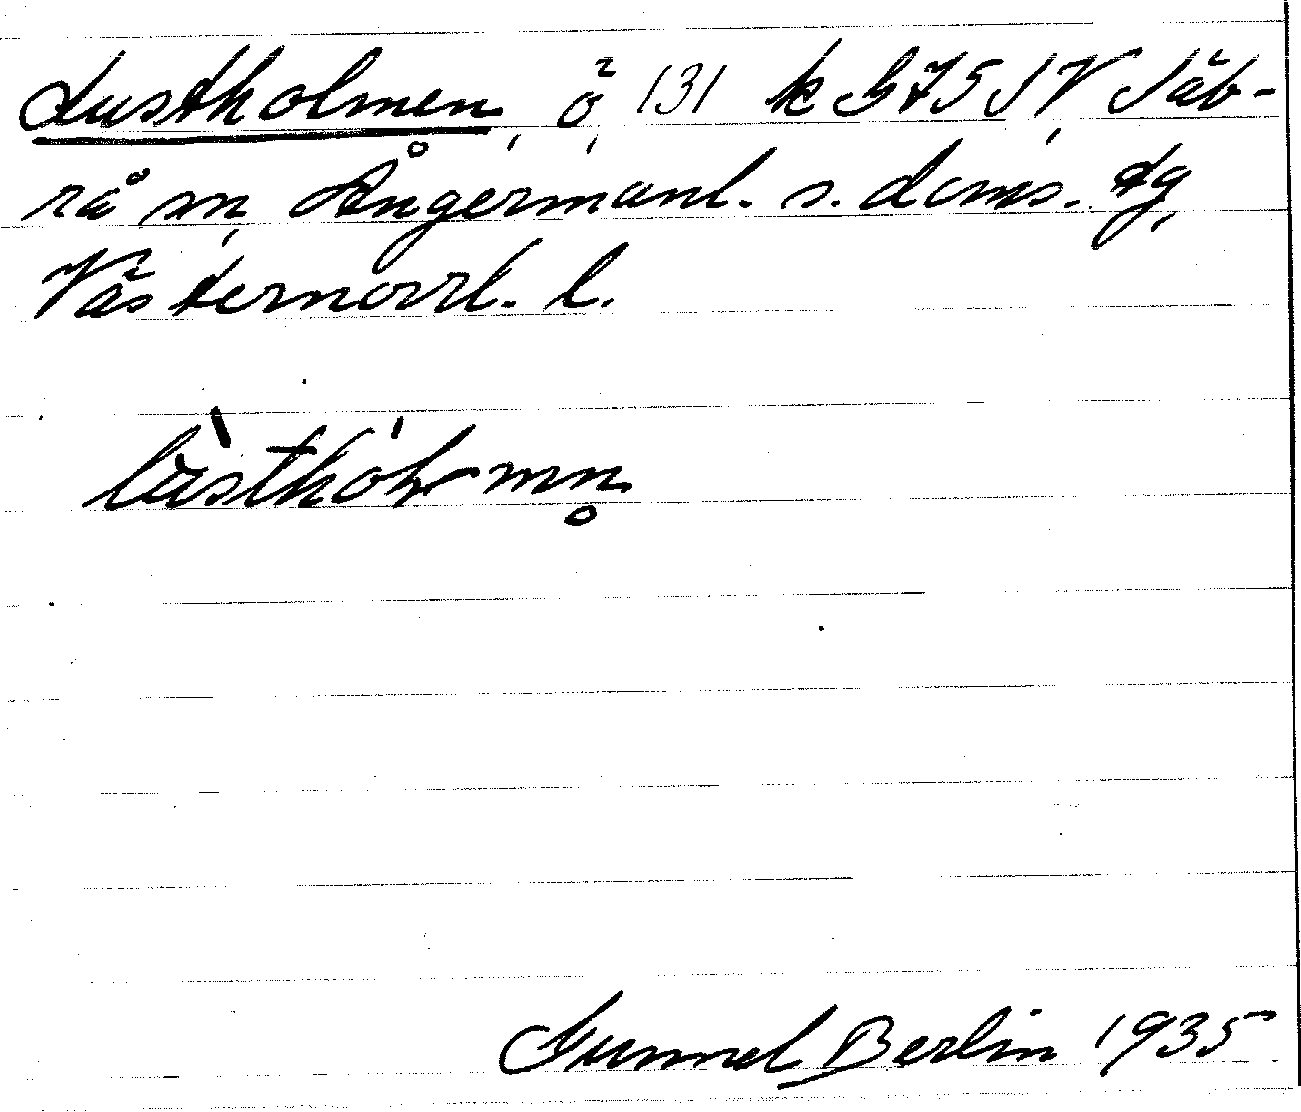 Lustholmen, ö, 131 k G 75 S V, Säb-
rå sn, Ångermanl. s. doms. tg,
Västernorrl. l.
lùsthól-mn̥
Gunnel Berlin 1935